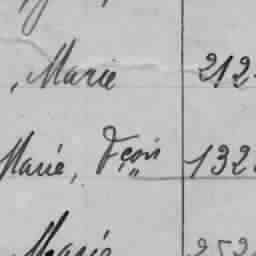 , Marie 212
Marié, Fçois 132
Marie 252